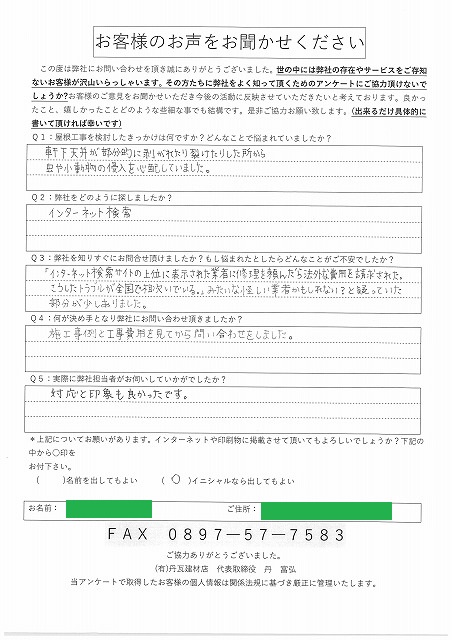 お客様のお声をお聞かせください
この度は弊社にお問い合わせを頂き誠にありがとうございました。世の中には弊社の存在やサービスをご存知
ないお客様が沢山いらっしゃいます。その方たちに弊社をよく知って頂くためのアンケートにご協力頂けないで
しょうか?お客様のご意見をお聞かせいただき今後の活動に反映させていただきたいと考えております。良かっ
たこと、嬉しかったことどのような些細な事でも結構です。是非ご協力お願い致します。（出来るだけ具体的に
書いて頂ければ幸いです）
Q1：屋根工事を検討したきっかけは何ですか？どんなことで悩まれていましたか？
軒下天井が部分的に剥がれたり裂けたりした所から
虫や小動物の侵入を心配していました。
Q2：弊社をどのように探しましたか？
インターネット検索
Q3：弊社を知りすぐにお問合せ頂けましたか？もし悩まれたとしたらどんなことがご不安でしたか？
「インターネット検索サイトの上位に表示された業者に修理を頼んだら法外な費用を請求された。
こうしたトラブルが全国で相次いでいる。」みたいな怪しい業者かもしれない？と疑っていた
部分が少しありました。
Q4：何が決め手となり弊社にお問い合わせ頂きましたか？
施工事例と工事費用を見てから問い合わせをしました。
Q5：実際に弊社担当者がお伺いしていかがでしたか？
対応と印象も良かったです。
＊上記についてお願いがあります。インターネットや印刷物に掲載させて頂いてもよろしいでしょうか？下記の
中から〇印を
お付下さい。
（　　）名前を出してもよい　　（ 〇 ）イニシャルなら出してもよい
お名前：　　ご住所：
FAX　0897―57―7583
ご協力ありがとうございました。
(有)丹瓦建材店　代表取締役　丹　富弘
当アンケートで取得したお客様の個人情報は関係法規に基づき厳正に管理いたします。